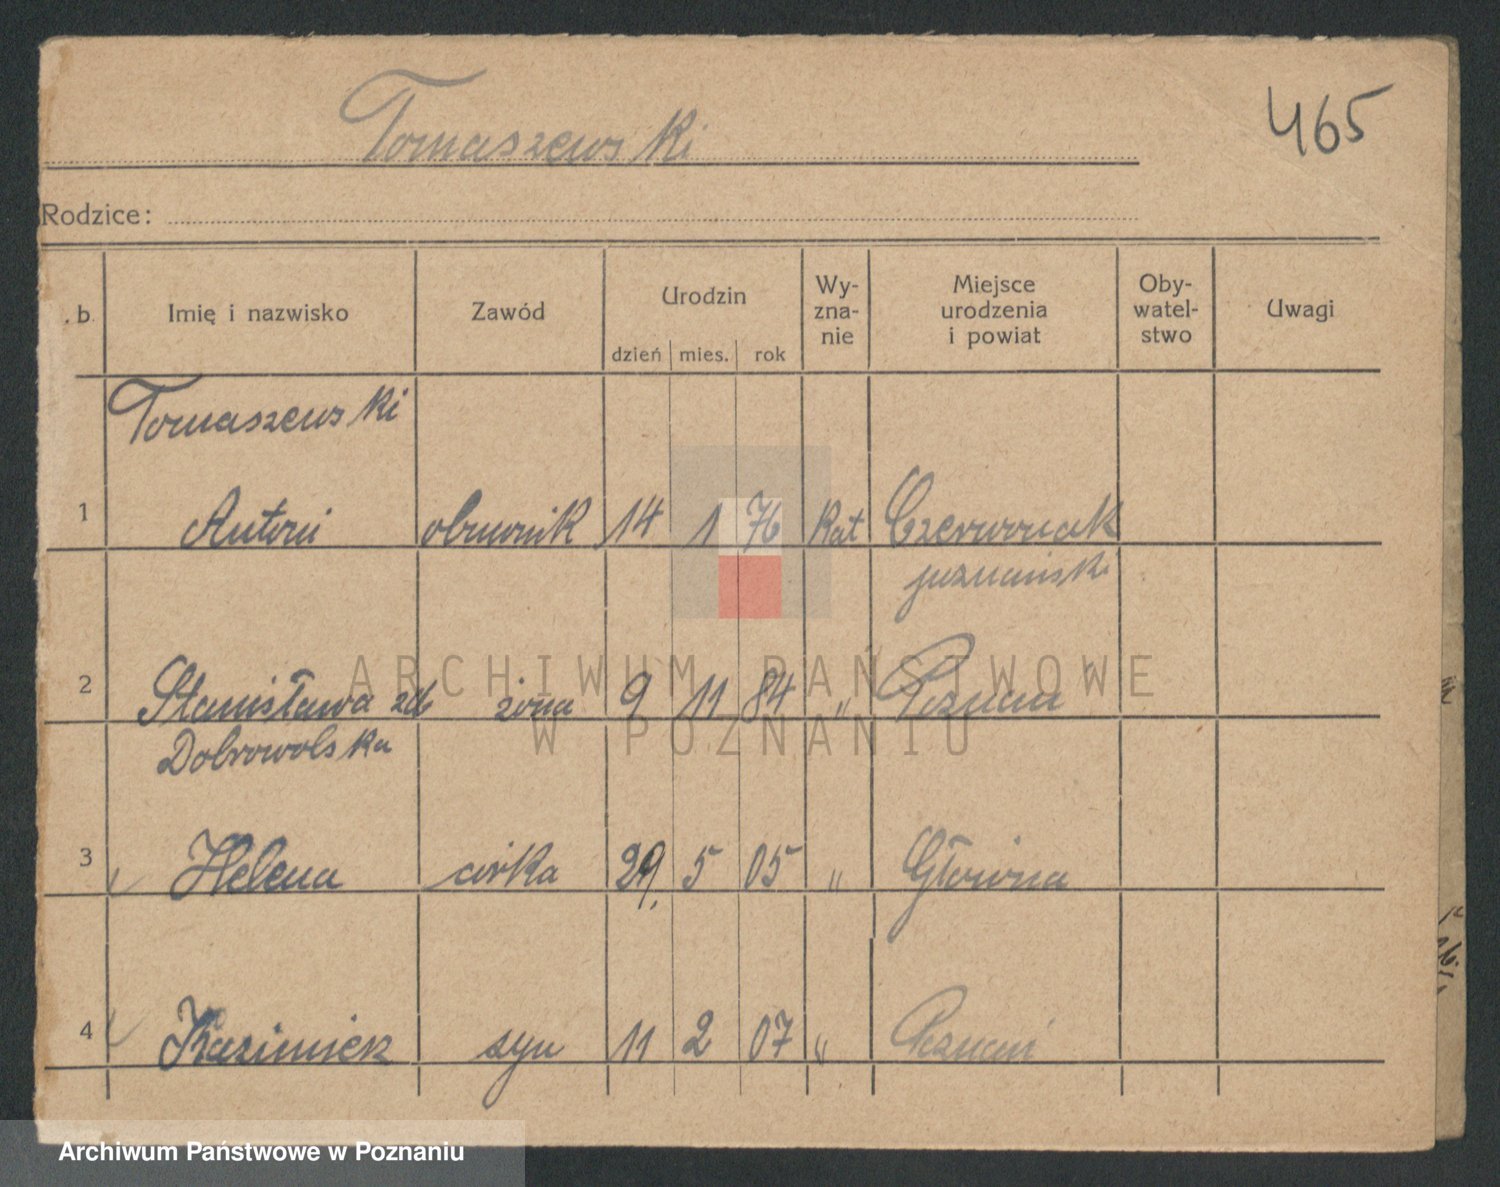 Tomaszewski
465
Rodzice:
.b. Imię i nazwisko Zawód Urodzin Wy-zna-nie Miejsce urodzenia i powiat Oby-watel-stwo Uwagi
dzień mies. rok
Tomaszewski
1 Antoni 14 1 76 Kat Czerwonak
poznański
2 Stanisława zd żona 9 11 84 " Poznań
Dobrowolska
3 Helena córka 29. 5 05 " Główna
4 Kazimierz syn 11 2 07 " Poznań
ARCHIWUM PAŃSTWOWE
W POZNANIU
Archiwum Państwowe w Poznaniu